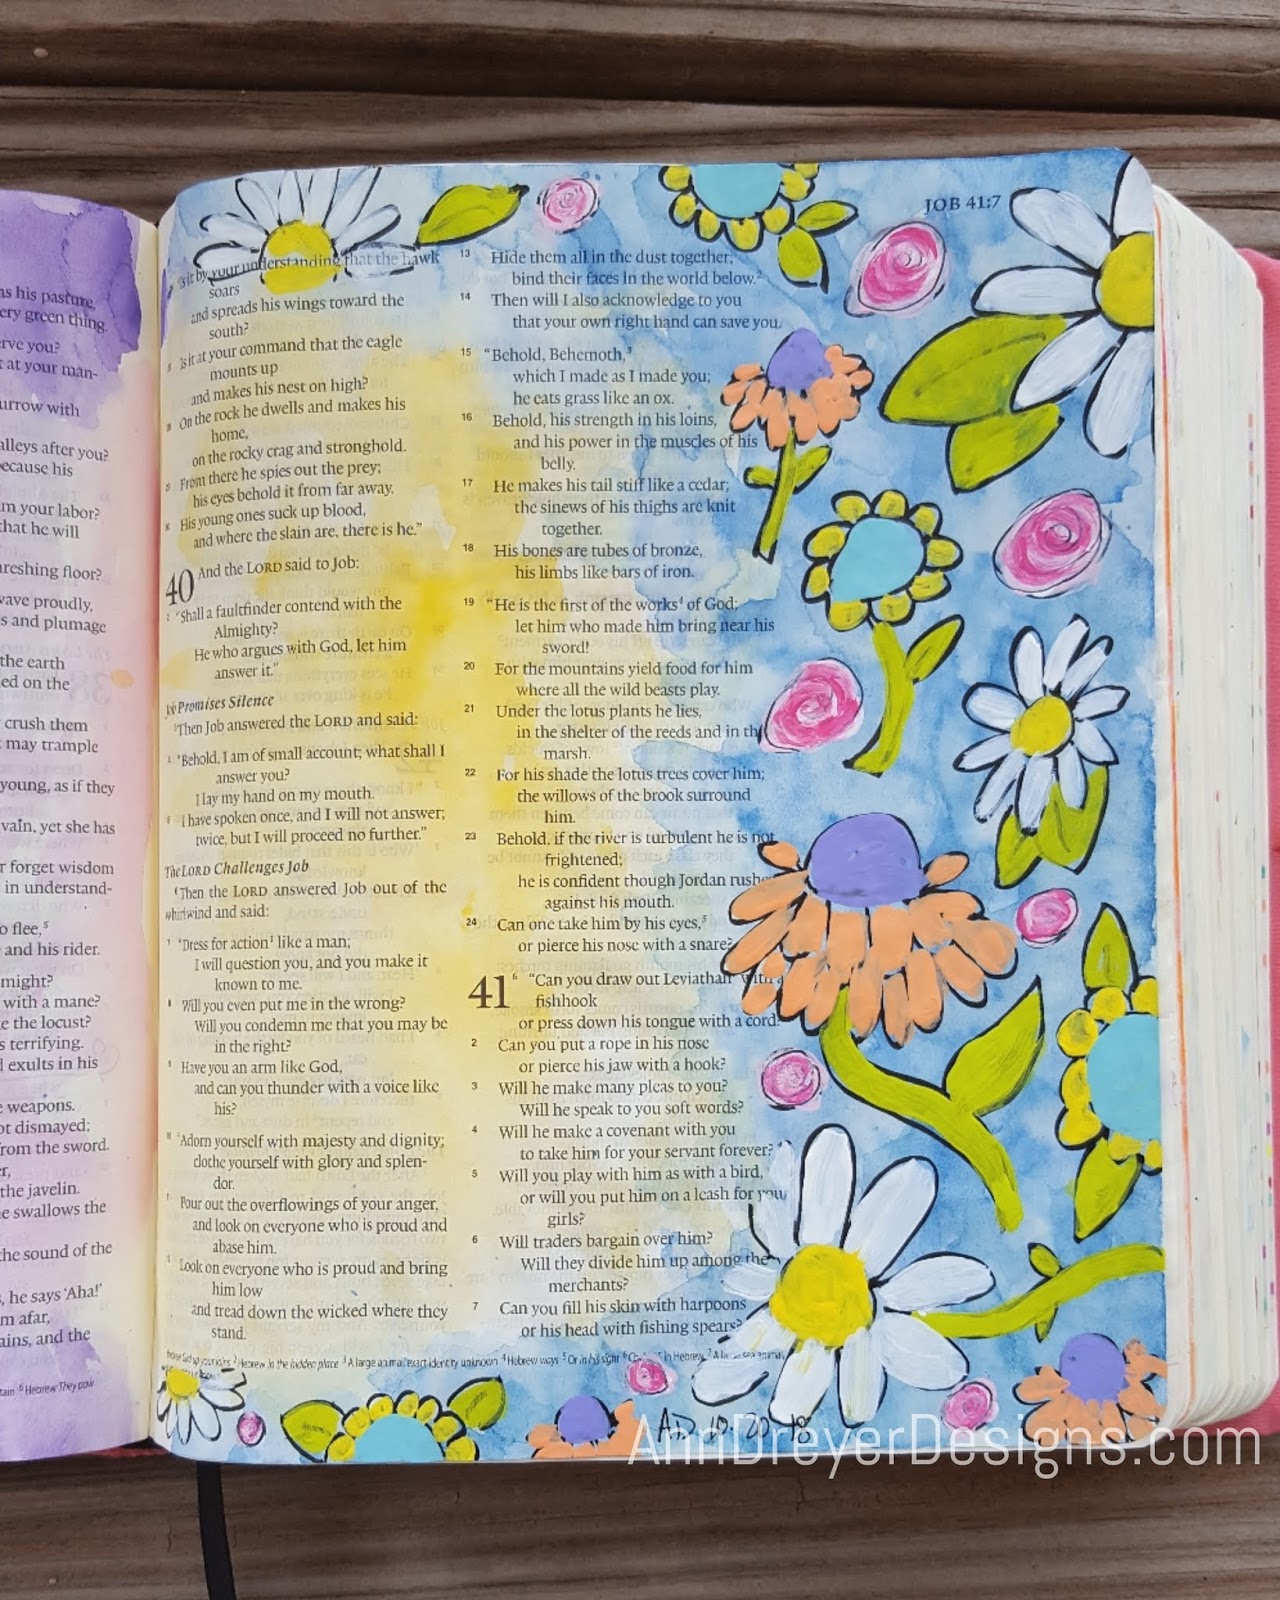 as his pasture,
ery green thing.
rve you?
t at your man-
urrow with
alleys after you?
ecause his
m your labor?
that he will
reshing floor?
wave proudly,
s and plumage
the earth
ed on the
crush them
may trample
young, as if they
vain, yet she has
r forget wisdom
in understand-
o flee,⁵
and his rider.
might?
with a mane?
e the locust?
s terrifying.
exults in his
weapons.
ot dismayed;
from the sword.
er,
the javelin.
e swallows the
the sound of the
, he says ‘Aha!’
m afar,
ains, and the
tain ⁶ Hebrew They paw
JOB 41:7
“Is it by your understanding that the hawk
soars
and spreads his wings toward the
south?
Is it at your command that the eagle
mounts up
and makes his nest on high?
On the rock he dwells and makes his
home,
on the rocky crag and stronghold.
From there he spies out the prey;
his eyes behold it from far away.
His young ones suck up blood,
and where the slain are, there is he.”
40 And the LORD said to Job:
“Shall a faultfinder contend with the
Almighty?
He who argues with God, let him
answer it.”
Job Promises Silence
Then Job answered the LORD and said:
“Behold, I am of small account; what shall I
answer you?
I lay my hand on my mouth.
I have spoken once, and I will not answer;
twice, but I will proceed no further.”
The LORD Challenges Job
Then the LORD answered Job out of the
whirlwind and said:
“Dress for action¹ like a man;
I will question you, and you make it
known to me.
Will you even put me in the wrong?
Will you condemn me that you may be
in the right?
Have you an arm like God,
and can you thunder with a voice like
his?
“Adorn yourself with majesty and dignity;
clothe yourself with glory and splen-
dor.
Pour out the overflowings of your anger,
and look on everyone who is proud and
abase him.
Look on everyone who is proud and bring
him low
and tread down the wicked where they
stand.
13 Hide them all in the dust together;
bind their faces in the world below.²
14 Then will I also acknowledge to you
that your own right hand can save you.
15 “Behold, Behemoth,³
which I made as I made you;
he eats grass like an ox.
16 Behold, his strength in his loins,
and his power in the muscles of his
belly.
17 He makes his tail stiff like a cedar;
the sinews of his thighs are knit
together.
18 His bones are tubes of bronze,
his limbs like bars of iron.
19 “He is the first of the works⁴ of God;
let him who made him bring near his
sword!
20 For the mountains yield food for him
where all the wild beasts play.
21 Under the lotus plants he lies,
in the shelter of the reeds and in the
marsh.
22 For his shade the lotus trees cover him;
the willows of the brook surround
him.
23 Behold, if the river is turbulent he is not
frightened;
he is confident though Jordan rushes
against his mouth.
24 Can one take him by his eyes,⁵
or pierce his nose with a snare?
41 ⁶ “Can you draw out Leviathan with a
fishhook
or press down his tongue with a cord?
2 Can you put a rope in his nose
or pierce his jaw with a hook?
3 Will he make many pleas to you?
Will he speak to you soft words?
4 Will he make a covenant with you
to take him for your servant forever?
5 Will you play with him as with a bird,
or will you put him on a leash for your
girls?
6 Will traders bargain over him?
Will they divide him up among the
merchants?
7 Can you fill his skin with harpoons
or his head with fishing spears?
² Hebrew in the hidden place ³ A large animal, exact identity unknown ⁴ Hebrew ways ⁵ Or in his sight ⁶ in Hebrew ⁷ A large sea animal,
A.D. 10-20-18
AnnDreyerDesigns.com